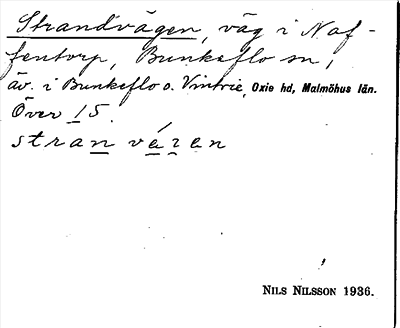 Strandvägen, väg i Naf-
fentorp, Bunkeflo sn,
äv. i Bunkeflo o. Vintrie, Oxie hd, Malmöhus län.
Över 15.
stran vézen
NILS NILSSON 1936.